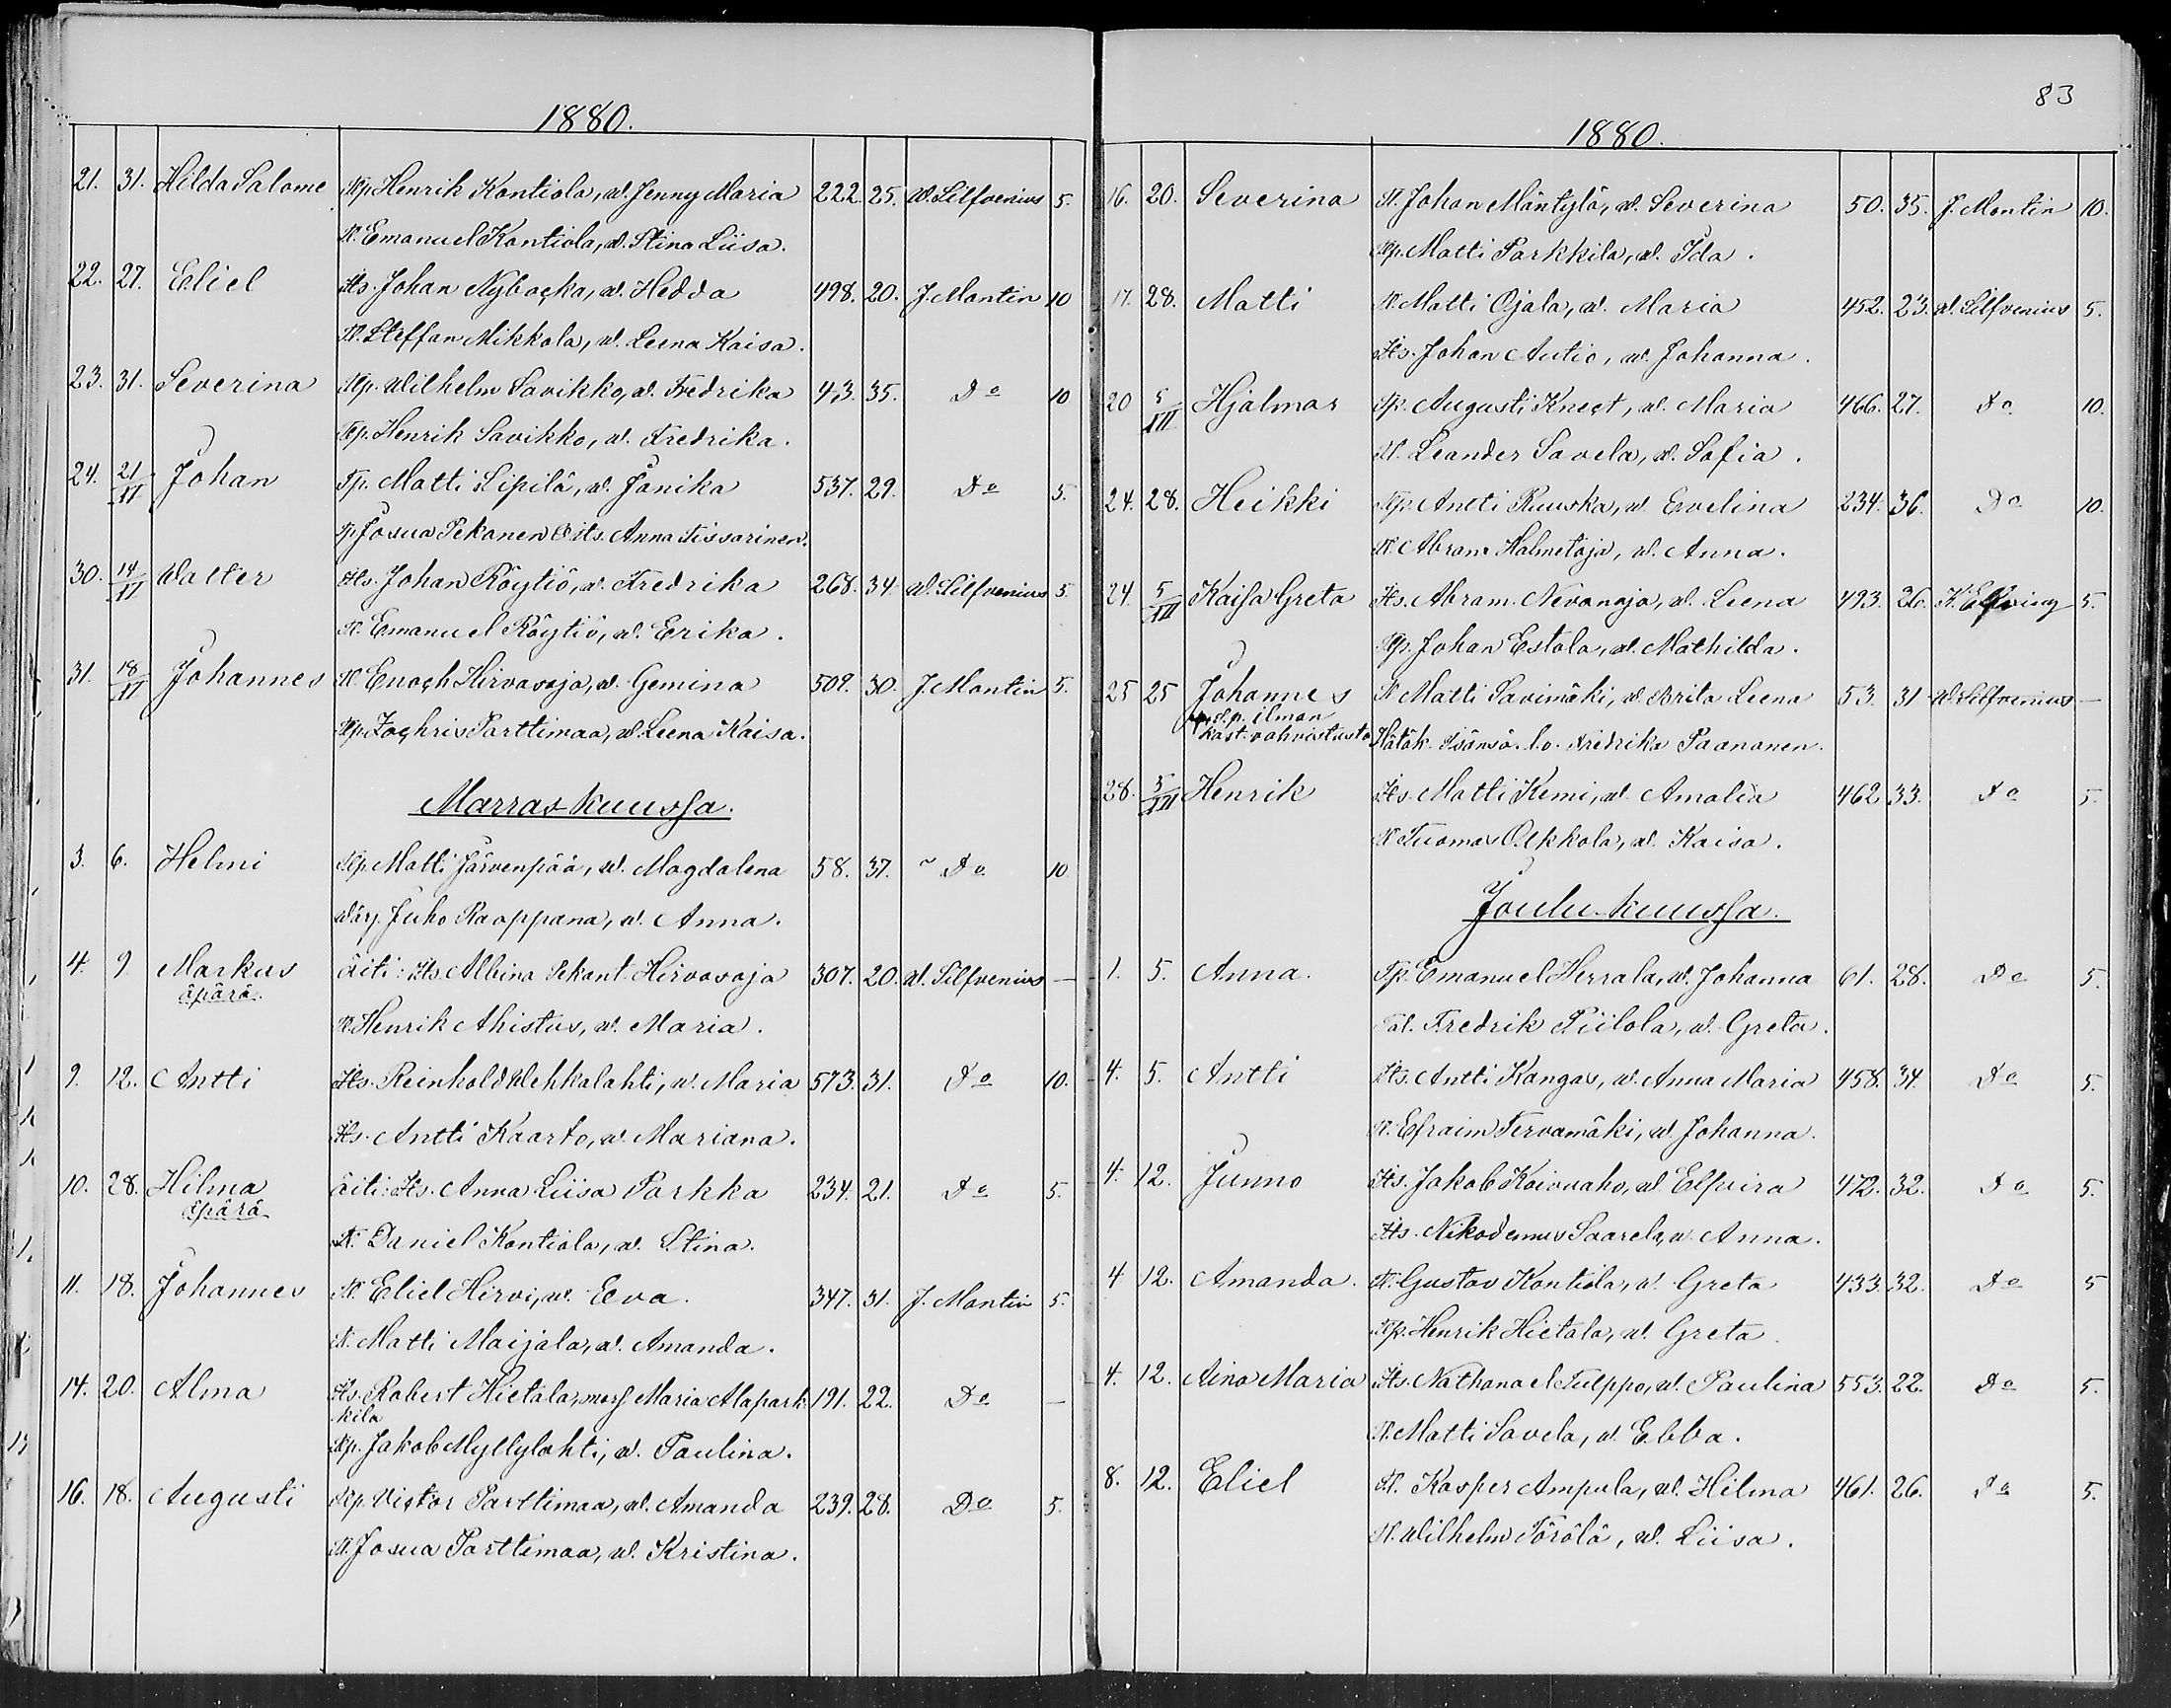 1880.
21. 31. Hilda Salome Tp. Henrik Kontiola, w. Jenny Maria 222. 25. W. Silfvenius 5.
T. Emanuel Kontiola, w. Stina Liisa.
22. 27. Eliel Its. Johan Nybacka, w. Hedda 498. 20. J. Montin 10
T. Steffan Mikkola, w. Leena Kaisa.
23. 31. Severina Tp. Wilhelm Savikko, w. Fredrika 43. 35. Do 10
Tp. Henrik Savikko, w. Fredrika.
24. 21/XI Johan Tp. Matti Lipilä, w. Janika 537. 29. Do 5.
Tp. Josua Pekanen & its. Anna Tissarinen.
30. 14/XI Walter Its. Johan Röytiö, w. Fredrika 268. 34. W. Silfvenius 5.
T. Emanuel Röytiö, w. Erika.
31. 18/XI Johannes T. Enoch Hirvasoja, w. Gemina 509. 30. J. Montin 5.
Tp. Zachris Parttimaa, w. Leena Kaisa.
Marraskuussa.
3. 6. Helmi Tp. Matti Järvenpää, w. Magdalena 58. 37. Do 10
Wärj. Juho Raappana, w. Anna.
4. 9. Markus äiti: Its. Albina Pekant. Hirvasoja 307. 20. W. Silfvenius —
äpärä.
T. Henrik Ahistus, w. Maria.
9. 12. Antti Its. Reinhold Wehkalahti, w. Maria 573. 31. Do 10.
Its. Antti Kaarto, w. Mariana.
10. 28. Hilma äiti: Its. Anna Liisa Parkka 234. 21. Do 5.
äpärä
T. Daniel Kontiola, w. Stina.
11. 18. Johannes T. Eliel Hirvi, w. Eva. 347. 31. J. Montin 5.
T. Matti Maijala, w. Amanda.
14. 20. Alma Its. Robert Hietala, mors. Maria Alapark- 191. 22. Do —
kila
Tp. Jakob Myllylahti, w. Paulina.
16. 18. Augusti Tp. Victor Parttimaa, w. Amanda 239. 28. Do 5.
T. Josua Parttimaa, w. Kristina.
83
1880.
16. 20. Severina T. Johan Mäntylä, w. Severina 50. 35. J. Montin 10.
Tp. Matti Parkkila, w. Ida.
17. 28. Matti T. Matti Ojala, w. Maria 452. 23. W. Silfvenius 5.
Its. Johan Autio, w. Johanna.
20 5/XII Hjalmar Tp. Augusti Knect, w. Maria 466. 27. Do 10.
T. Leander Savela, w. Sofia.
24. 28. Heikki Tp. Antti Ruuska, w. Ewelina 234. 36. Do 10.
T. Abram Halmetoja, w. Anna.
24. 5/XII Kaisa Greta Its. Abram Nevanoja, w. Leena 493. 26. K. Elfving 5.
Tp. Johan Estola, w. Mathilda.
25 25 Johannes T. Matti Savimäki, w. Brita Leena 53. 31 W. Silfvenius —
ilman
kast. vahvistusta Hätäk. Isänsä. l.o. Fredrika Paananen.
28. 5/XII Henrik Its. Matti Kemi, w. Amalia 462 33. Do 5.
T. Tuomas Olkkola, w. Kaisa.
Joulukuussa.
1. 5. Anna. Tp. Emanuel Herrala, w. Johanna 61. 28. Do 5.
Tal. Fredrik Piilola, w. Greta.
4. 5. Antti Its. Antti Kangas, w. Anna Maria 458. 34. Do 5.
T. Efraim Tervamäki, w. Johanna.
4. 12. Junno Its. Jakob Koivuaho, w. Elfvira 472. 32. Do 5.
Its. Nikodemus Saarela, w. Anna.
4 12. Amanda. T. Gustav Kontiola, w. Greta 433. 32. Do 5
Tp. Henrik Hietala, w. Greta.
4. 12. Aina Maria Its. Nathanael Tulppo, w. Paulina 553. 22. Do 5.
T. Matti Savela, w. Ebba.
8. 12. Eliel T. Kasper Ampula, w. Hilma 461. 26. Do 5.
T. Wilhelm Törölä, w. Liisa.